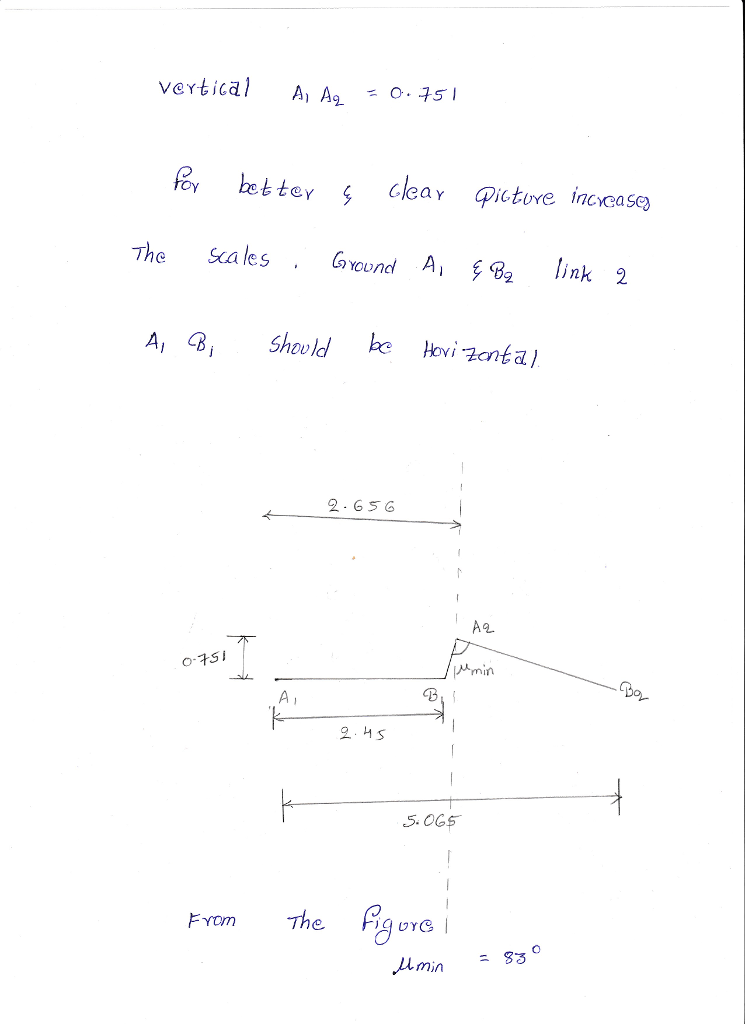 vertical A1 A2 = 0.751
For better & clear Picture increases
The scales . Ground A1 & B2 link 2
A1 B1 should be Horizontal.
2.656
A2
0.751
μmin
A1
B1
B2
2.45
5.065
From The Figure
μmin = 83°